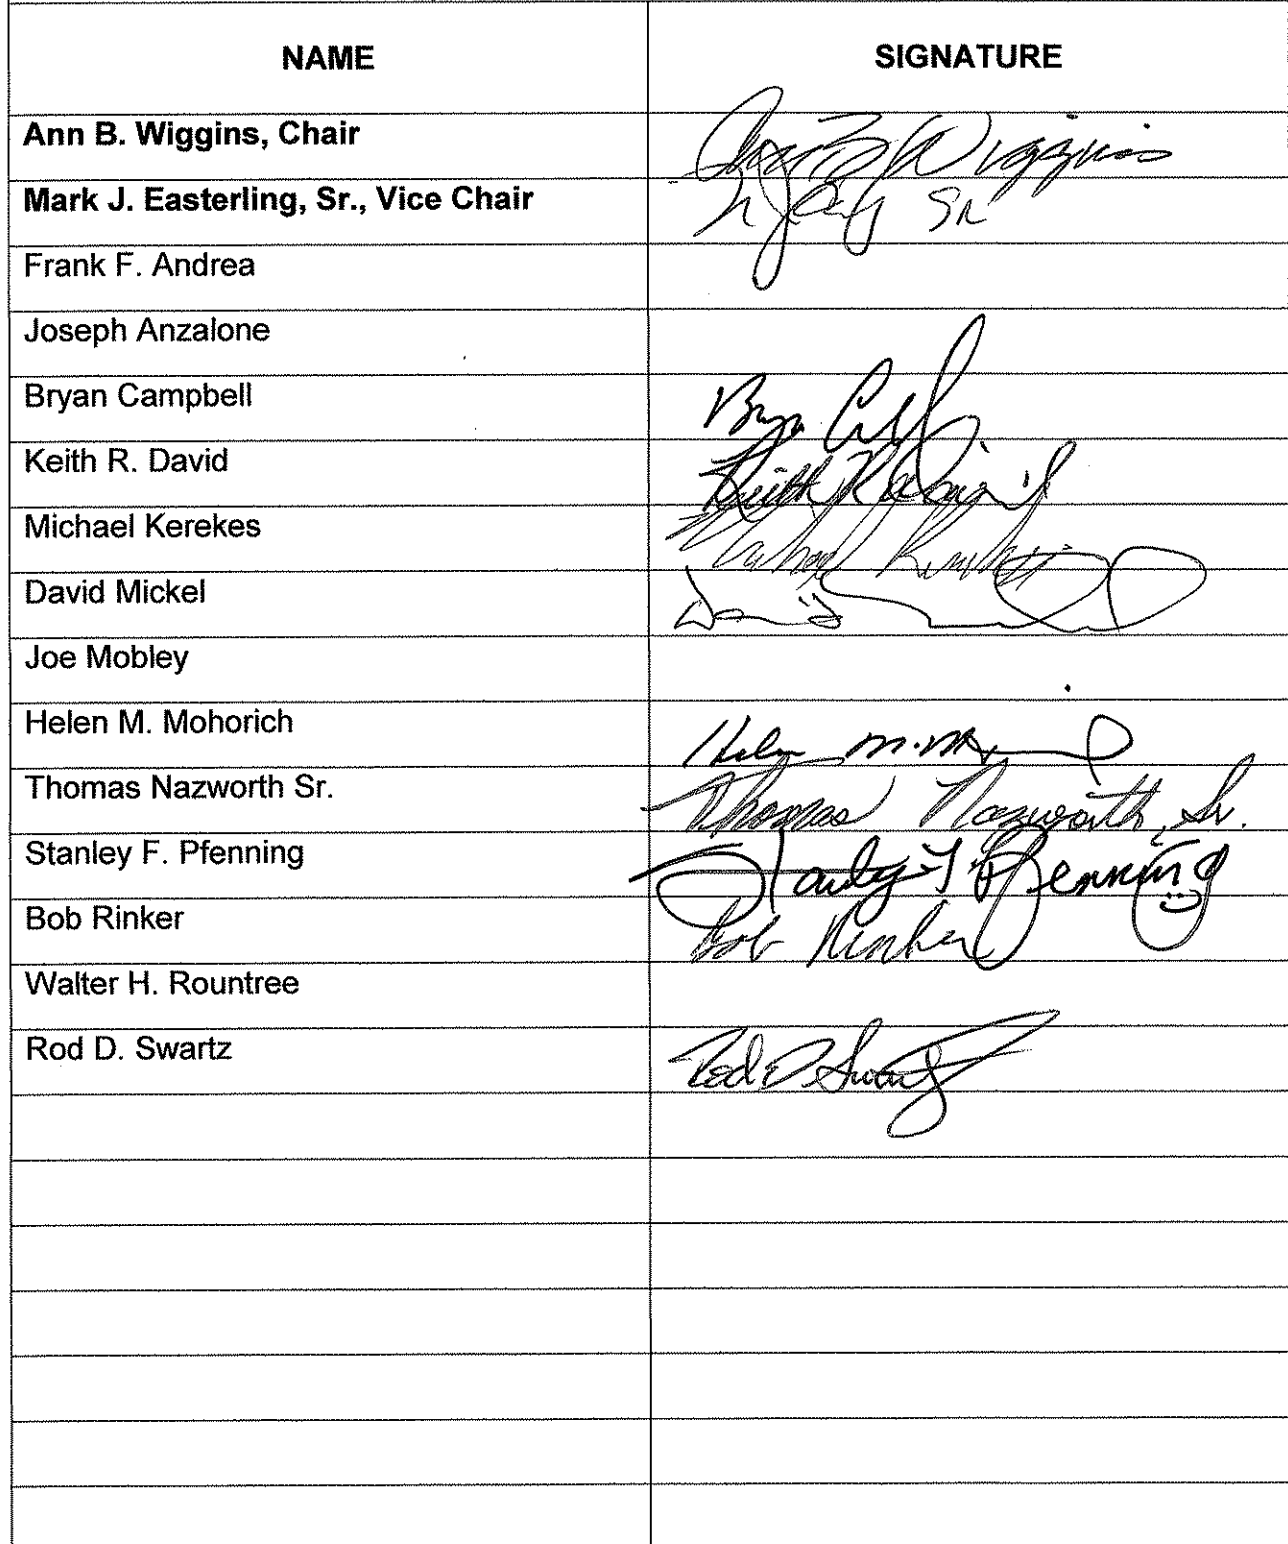 NAME SIGNATURE
Ann B. Wiggins, Chair Ann B Wiggins
Mark J. Easterling, Sr., Vice Chair Sr
Frank F. Andrea
Joseph Anzalone
Bryan Campbell Bryan
Keith R. David Keith R David
Michael Kerekes Michael
David Mickel David
Joe Mobley
Helen M. Mohorich Helen M.
Thomas Nazworth Sr. Thomas Nazworth, Sr.
Stanley F. Pfenning Stanley F Pfenning
Bob Rinker Bob Rinker
Walter H. Rountree
Rod D. Swartz Rod D. Swartz